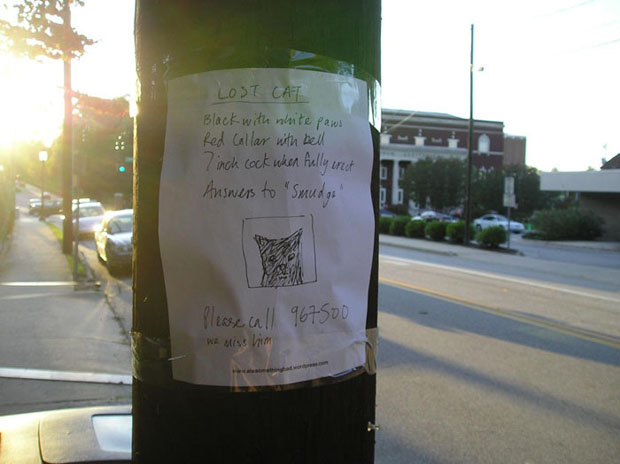 LOST CAT
Black with white paws
Red Collar with bell
7 inch cock when fully erect
Answers to "Smudge"
Please call 967500
we miss him